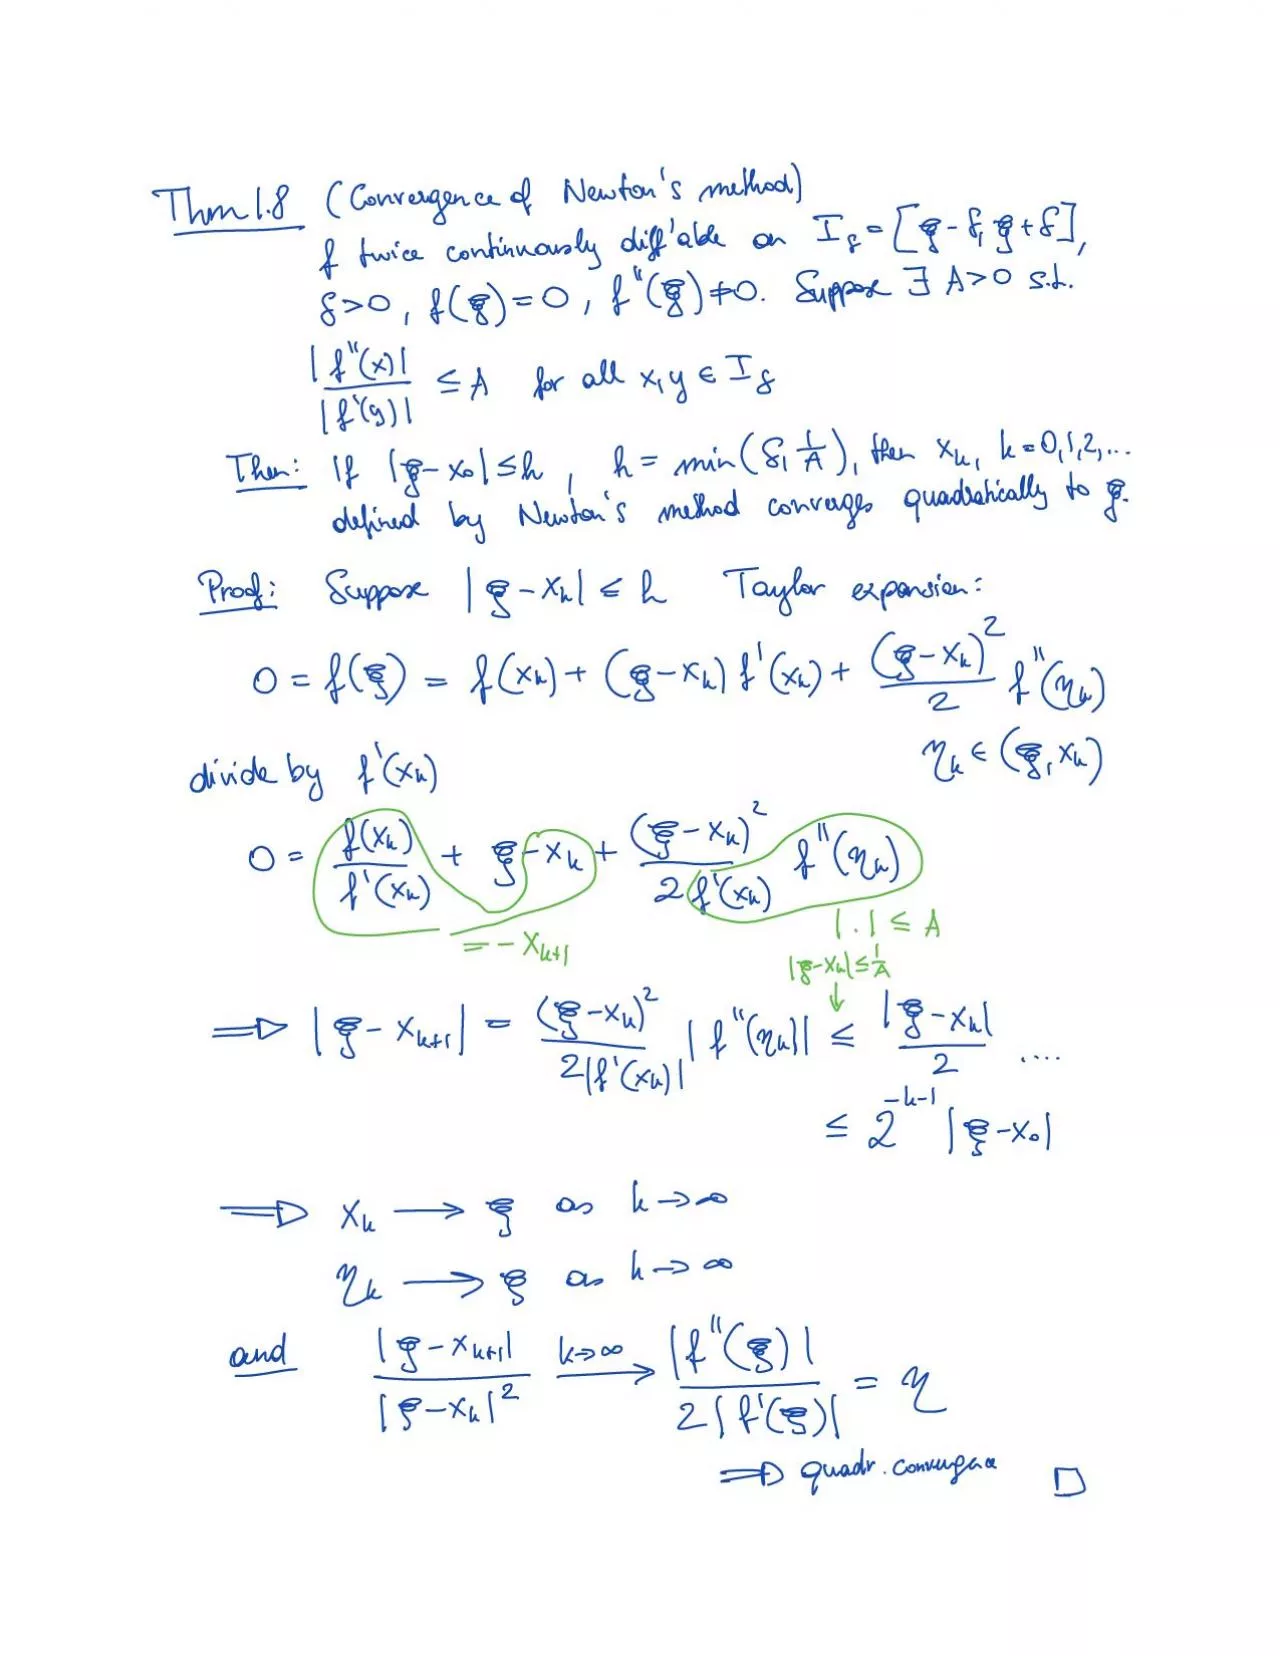 Thm 1.8 (Convergence of Newton's method)
f twice continuously diff'able on I_δ = [ξ - δ, ξ + δ],
δ > 0, f(ξ) = 0, f''(ξ) ≠ 0. Suppose ∃ A > 0 s.t.
|f''(x)| / |f'(y)| ≤ A for all x, y ∈ I_δ
Then: If |ξ - x_0| ≤ h, h = min(δ, 1/A), then x_k, k = 0,1,2,...
defined by Newton's method converges quadratically to ξ.
Proof: Suppose |ξ - x_k| ≤ h Taylor expansion:
0 = f(ξ) = f(x_k) + (ξ - x_k) f'(x_k) + (ξ - x_k)^2 / 2 f''(η_k)
η_k ∈ (ξ, x_k)
divide by f'(x_k)
0 = f(x_k) / f'(x_k) + ξ - x_k + (ξ - x_k)^2 / 2f'(x_k) f''(η_k)
= - x_{k+1}
|.| ≤ A
|ξ - x_k| ≤ 1/A
↓
⟹ |ξ - x_{k+1}| = (ξ - x_k)^2 / 2|f'(x_k)| |f''(η_k)| ≤ |ξ - x_k| / 2 ....
≤ 2^{-k-1} |ξ - x_0|
⟹ x_k → ξ as k → ∞
η_k → ξ as k → ∞
and |ξ - x_{k+1}| / |ξ - x_k|^2 k→∞ → |f''(ξ)| / 2|f'(ξ)| = η
⟹ quadr. convergence □